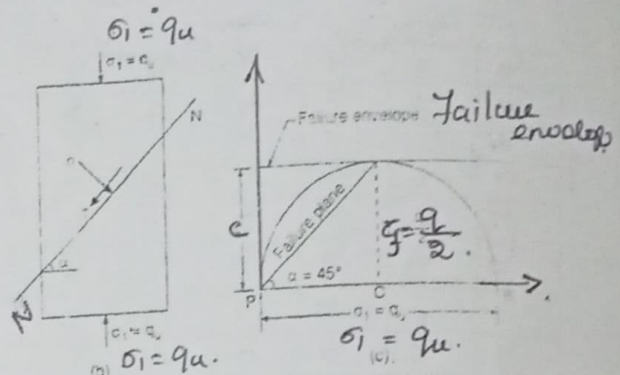 σ₁ = qu
σ₁ = qᵤ
N
σ
α
N
σ₁ = qᵤ
(b) σ₁ = qu.
Failure envelope Failure
envelop
c
Failure plane
τf = q/2.
α = 45°
P
C
σ₁ = qᵤ
σ₁ = qu.
(c)